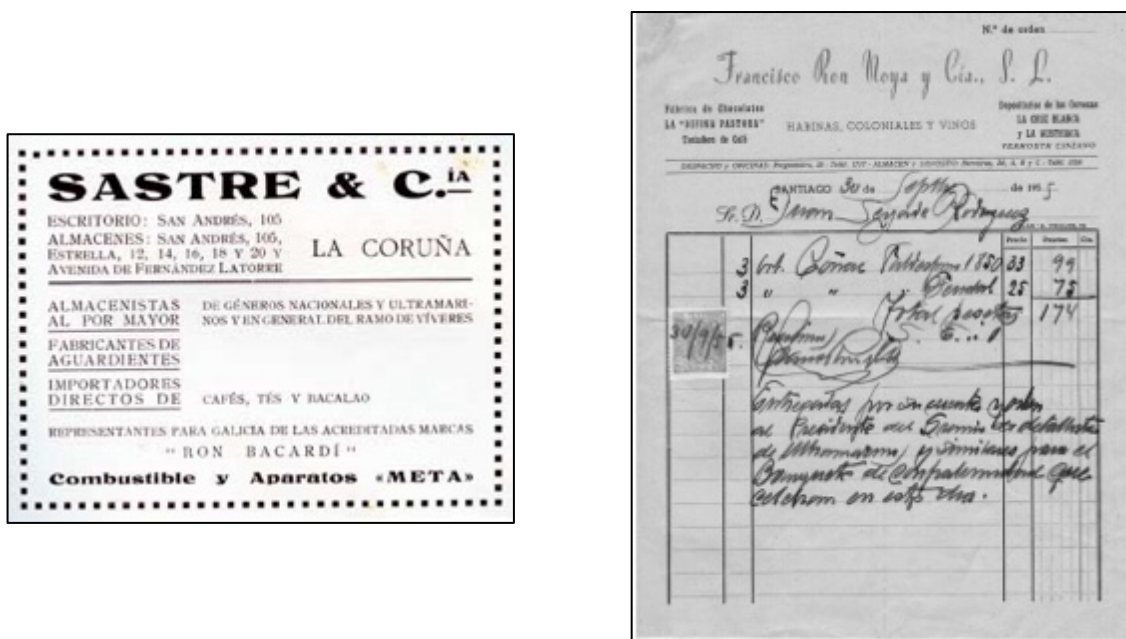 SASTRE & C.ÍA
ESCRITORIO: SAN ANDRÉS, 105
ALMACENES: SAN ANDRÉS, 105,
ESTRELLA, 12, 14, 16, 18 Y 20 Y
AVENIDA DE FERNÁNDEZ LATORRE
LA CORUÑA
ALMACENISTAS
AL POR MAYOR
DE GÉNEROS NACIONALES Y ULTRAMARI-
NOS Y EN GENERAL DEL RAMO DE VÍVERES
FABRICANTES DE
AGUARDIENTES
IMPORTADORES
DIRECTOS DE
CAFÉS, TÉS Y BACALAO
REPRESENTANTES PARA GALICIA DE LAS ACREDITADAS MARCAS
"RON BACARDÍ"
Combustible y Aparatos «META»
N.º de orden
Francisco Ron Moya y Cía., S. L.
Fábrica de Chocolates
LA "DIVINA PASTORA"
Tostadero de Café
HARINAS, COLONIALES Y VINOS
Depositarios de las Cervezas
LA CRUZ BLANCA
y LA AUSTRIACA
VERMOUTH CINZANO
SANTIAGO 30 de Septbre de 1955
Sr. D. Juan Rodriguez
Precio Pesetas Cts.
3 bot. Coñac 1850 33 99
3 " " 25 75
Total pesetas 174
30/9/55.
Entregadas por su cuenta y orden
al Presidente del Gremio de detallistas
de Ultramarinos y similares para el
Banquete de confraternidad que
celebran en este dia.